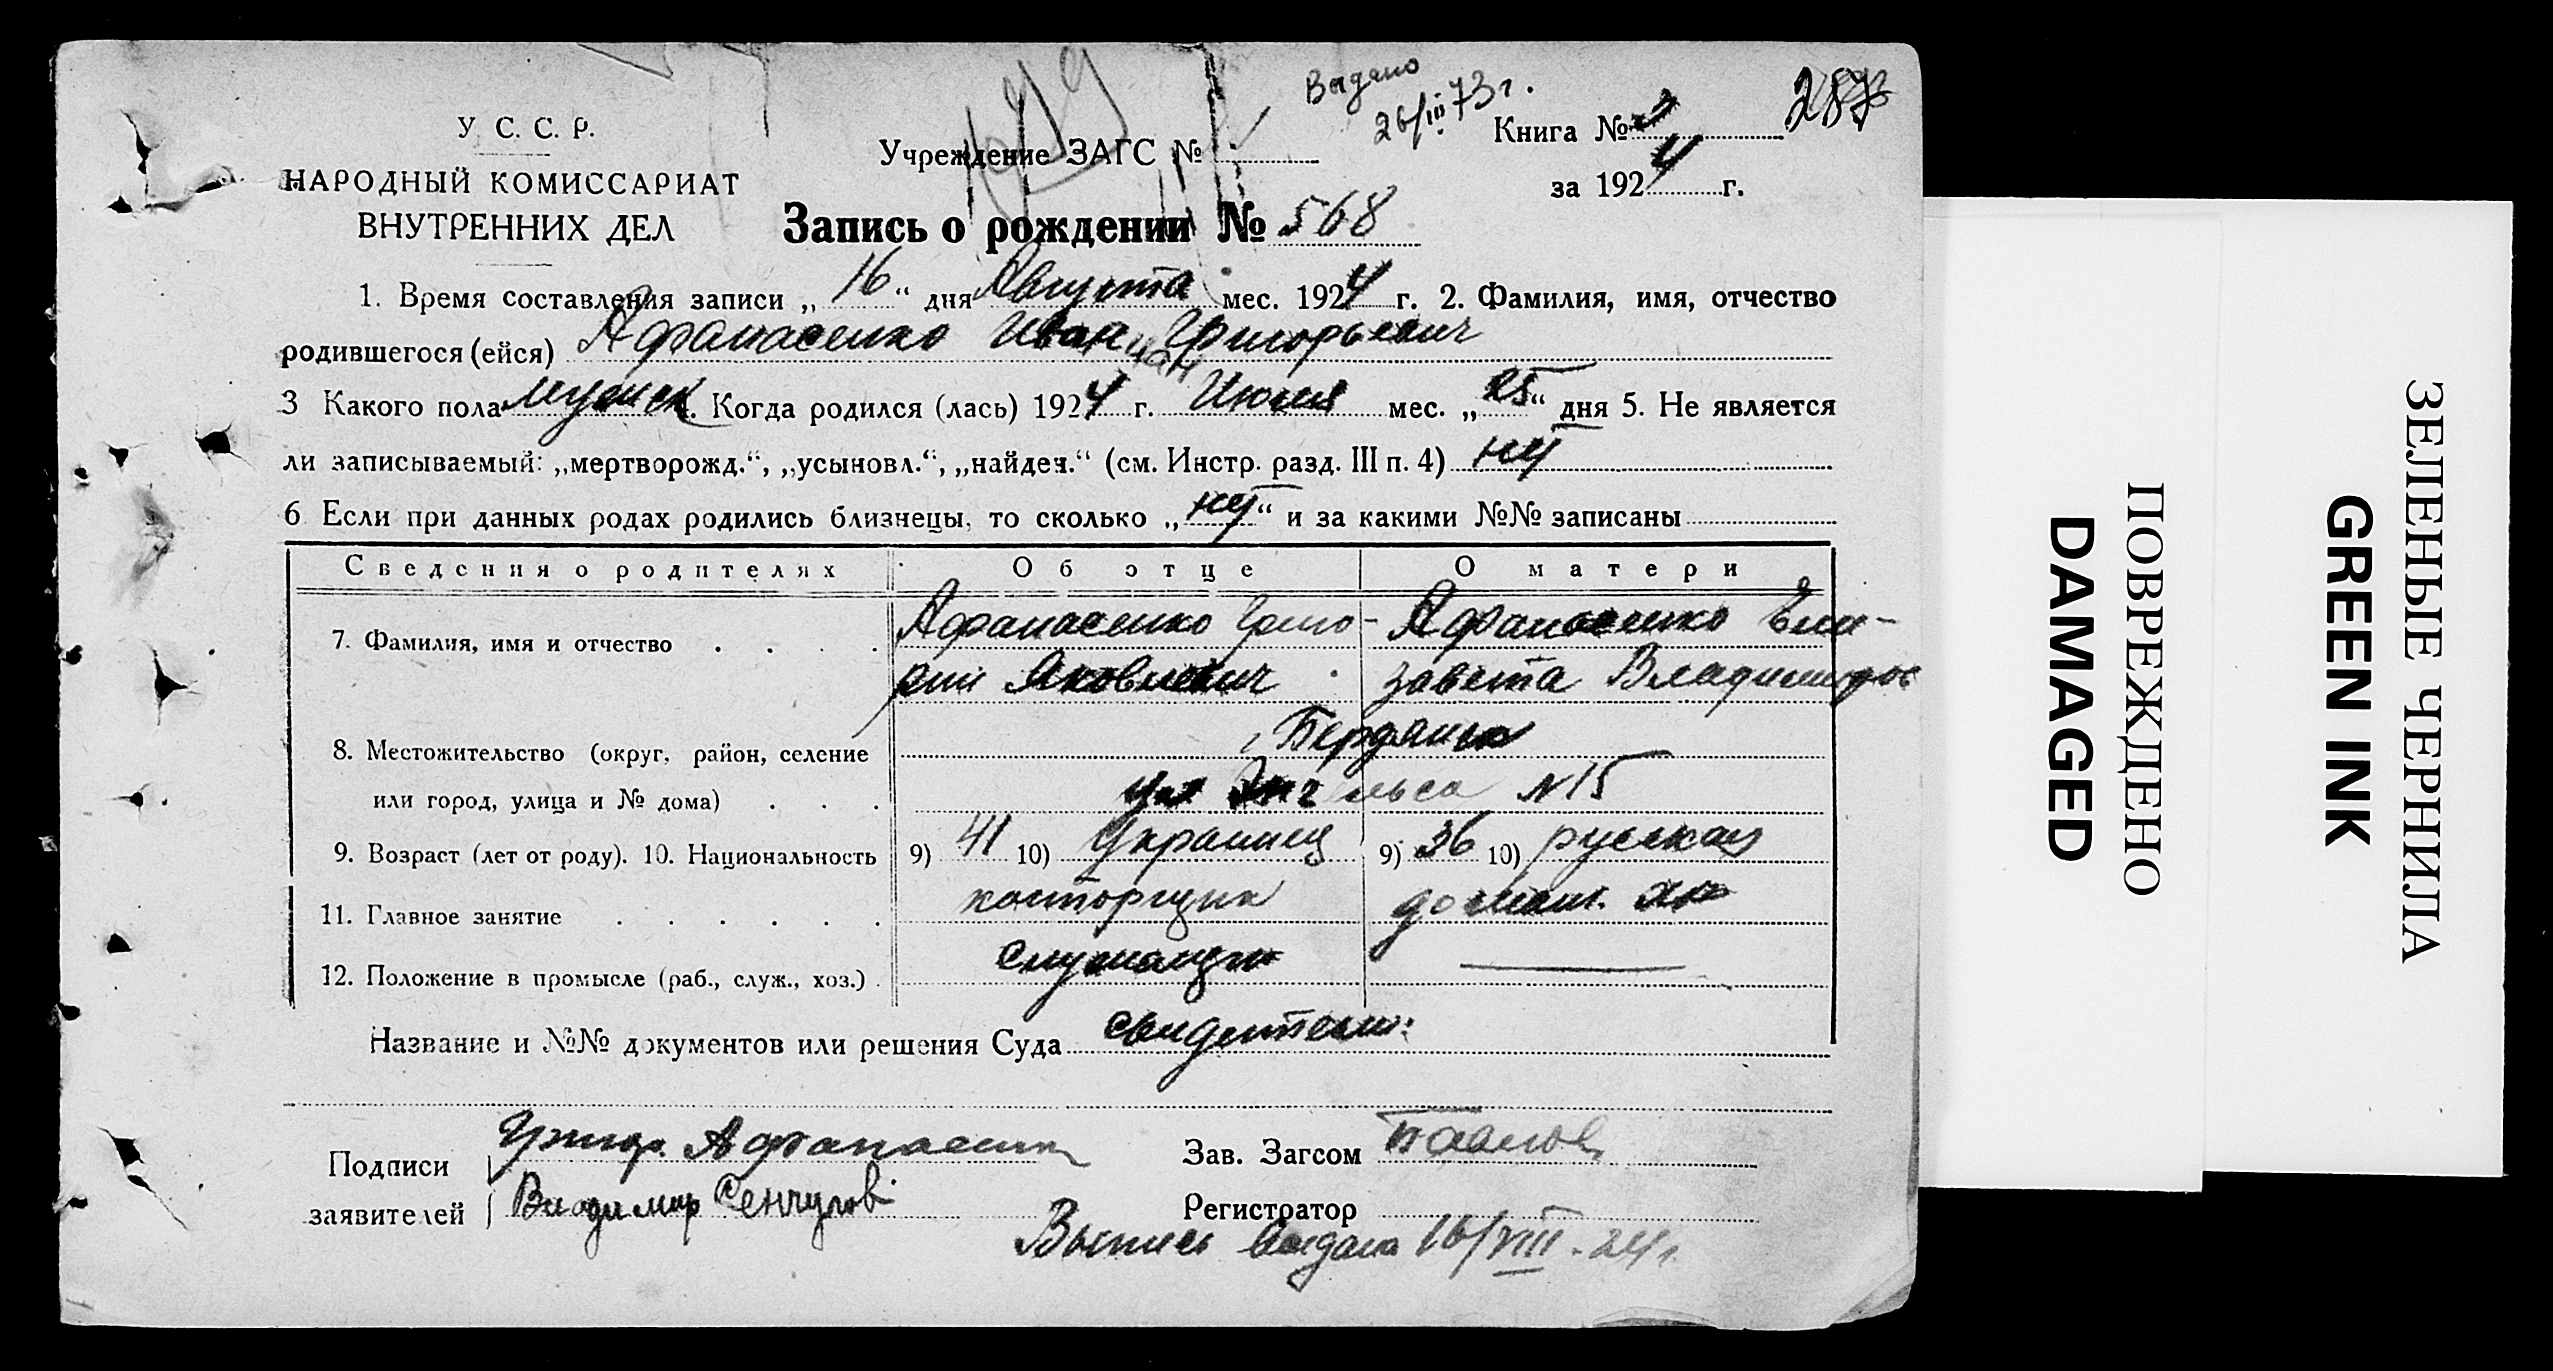 У. С. С. Р.
НАРОДНЫЙ КОМИССАРИАТ
ВНУТРЕННИХ ДЕЛ
Выдано
26/III 73 г.
Учреждение ЗАГС №
Книга №
287
за 1924 г.
Запись о рождении № 568
1. Время составления записи „16“ дня Августа мес. 1924 г. 2. Фамилия, имя, отчество
родившегося (ейся) Афанасенко Иван Григорьевич
3 Какого пола мужск 4. Когда родился (лась) 1924 г. мес. „25“ дня 5. Не является
ли записываемый: „мертворожд.“, „усыновл.“, „найден.“ (см. Инстр. разд. III п. 4) нет
6 Если при данных родах родились близнецы, то сколько „нет“ и за какими №№ записаны
Сведения о родителях Об отце О матери
7. Фамилия, имя и отчество Афанасенко Григо- Афанасенко Ели-
рий Яковлевич завета Владимиров
8. Местожительство (округ, район, селение Бердянск
или город, улица и № дома) ул Энгельса N 15
9. Возраст (лет от роду). 10. Национальность 9) 41 10) Украинец 9) 36 10) русская
11. Главное занятие домаш. хоз
12. Положение в промысле (раб., служ., хоз.) служащий
Название и №№ документов или решения Суда свидетели:
Подписи Григор. Афанасенко Зав. Загсом Павлов
заявителей Владимир Сенчугов Регистратор
Выпись выдана 16/VIII-24 г.
ПОВРЕЖДЕНО
DAMAGED
ЗЕЛЕНЫЕ ЧЕРНИЛА
GREEN INK